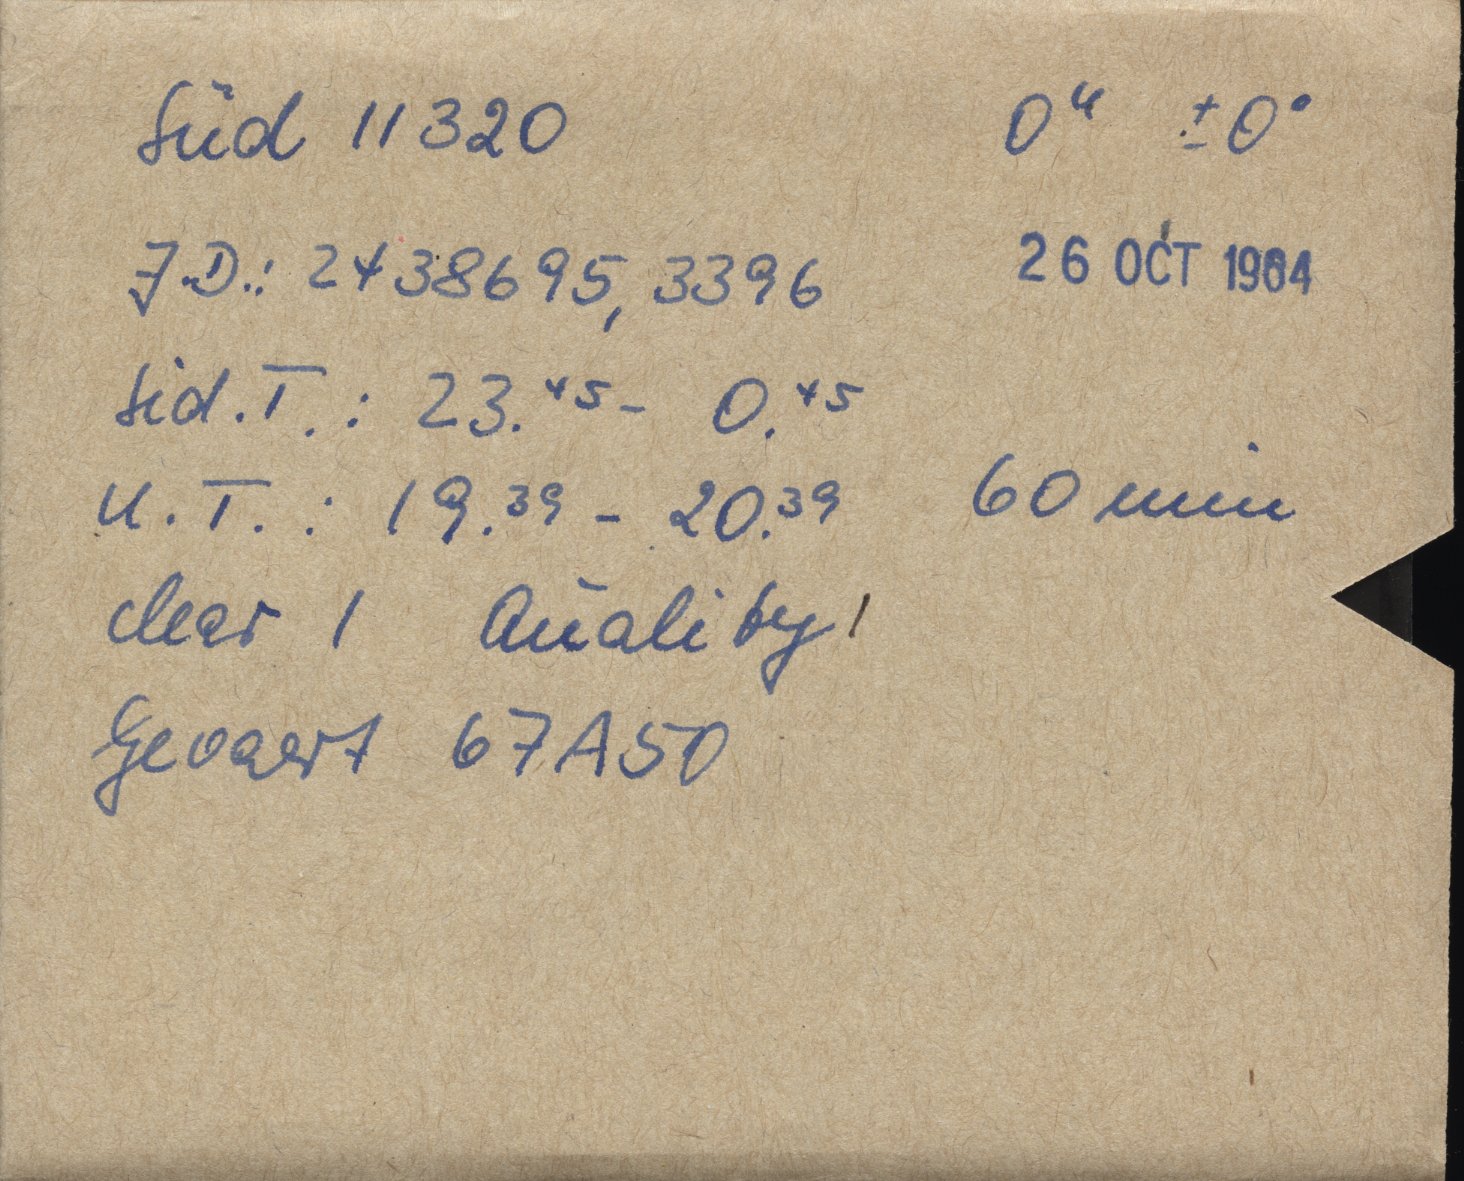 Süd 11320 0ʰ ±0°
J.D.: 2438695,3396 26 OCT 1964
Sid.T.: 23.⁴⁵ - 0.⁴⁵
U.T.: 19.³⁹ - 20.³⁹ 60 min
clear 1 Quality 1
Gevaert 67A50